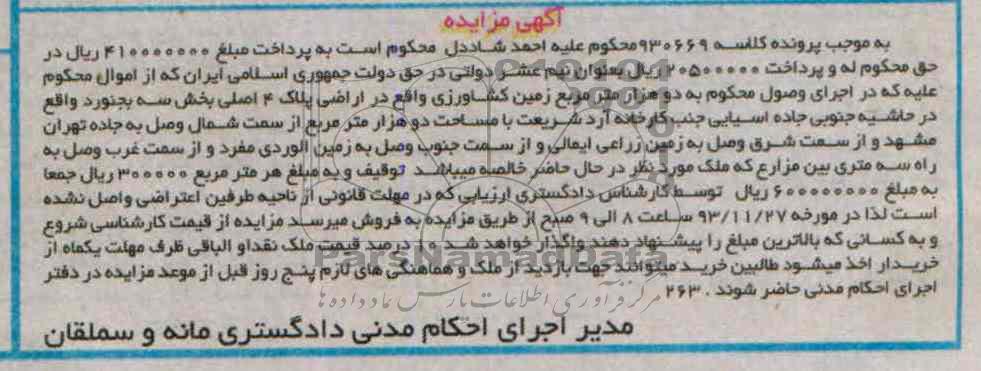 آگهی مزایده
به موجب پرونده کلاسه ۹۳۰۶۶۹محکوم علیه احمد شاددل محکوم است به پرداخت مبلغ ۴۱۰۰۰۰۰۰۰ ریال در
حق محکوم له و پرداخت ۲۰۵۰۰۰۰۰ ریال بعنوان نیم عشر دولتی در حق دولت جمهوری اسلامی ایران که از اموال محکوم
علیه که در اجرای وصول محکوم به دو هزار متر مربع زمین کشاورزی واقع در اراضی پلاک ۴ اصلی بخش سه بجنورد واقع
در حاشیه جنوبی جاده آسیایی جنب کارخانه آرد شریعت با مساحت دو هزار متر مربع از سمت شمال وصل به جاده تهران
مشهد و از سمت شرق وصل به زمین زراعی ایمانی و از سمت جنوب وصل به زمین الوردی مفرد و از سمت غرب وصل به
راه سه متری بین مزارع که ملک مورد نظر در حال حاضر خالصه میباشد توقیف و به مبلغ هر متر مربع ۳۰۰۰۰۰ ریال جمعا
به مبلغ ۶۰۰۰۰۰۰۰۰ ریال توسط کارشناس دادگستری ارزیابی که در مهلت قانونی از ناحیه طرفین اعتراضی واصل نشده
است لذا در مورخه ۹۳/۱۱/۲۷ ساعت ۸ الی ۹ صبح از طریق مزایده به فروش میرسد مزایده از قیمت کارشناسی شروع
و به کسانی که بالاترین مبلغ را پیشنهاد دهند واگذار خواهد شد ۱۰ درصد قیمت ملک نقدا و الباقی ظرف مهلت یکماه از
خریدار اخذ میشود طالبین خرید میتوانند جهت بازدید از ملک و هماهنگی های لازم پنج روز قبل از موعد مزایده در دفتر
اجرای احکام مدنی حاضر شوند . ۲۶۳
ParsNamadData
مرکز فرآوری اطلاعات پارس نماد داده ها
مدیر اجرای احکام مدنی دادگستری مانه و سملقان